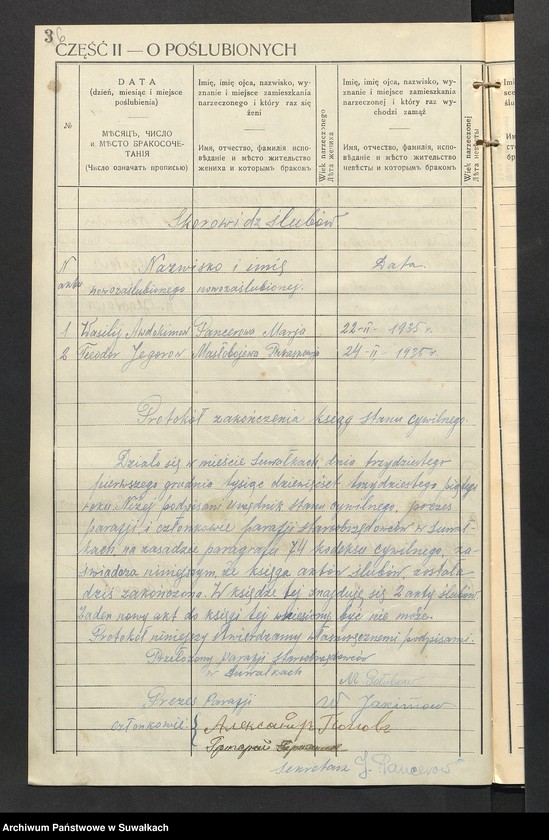 36
CZĘŚĆ II — O POŚLUBIONYCH
№
DATA
(dzień, miesiąc i miejsce
poślubienia)
МѢСЯЦЪ, ЧИСЛО
и МѢСТО БРАКОСОЧЕ-
ТАНІЯ
(Число означать прописью)
Imię, imię ojca, nazwisko, wy-
znanie i miejsce zamieszkania
narzeczonego i który raz się
żeni
Имя, отчество, фамилія, испо-
вѣданіе и мѣсто жительство
жениха и которымъ бракомъ
Wiek narzeczonego
Лѣта жениха
Imię, imię ojca, nazwisko, wy-
znanie i miejsce zamieszkania
narzeczonej i który raz wy-
chodzi zamąż
Имя, отчество, фамилія, испо-
вѣданіе и мѣсто жительство
невѣсты и которымъ бракомъ
Wiek narzeczonej
Лѣта невѣсты
Skorowidz ślubów.
N aktu
Nazwisko i imię
Data.
nowozaślubionego nowozaślubionej.
1 Wasilij Awdokimow Pancerowa Marja 22-II-1935 r.
2 Teodor Jegorow Masłobojewa 24-II-1935 r.
Protokół zakończenia ksiąg stanu cywilnego.
Działo się w mieście Suwałkach dnia trzydziestego
pierwszego grudnia tysiąc dziewięćset trzydziestego piątego
roku. Niżej podpisani urzędnik stanu cywilnego, prezes
parafji i członkowie parafji staroobrzędowców w Suwał-
kach, na zasadzie paragrafu 74 kodeksu cywilnego, za-
świadcza niniejszym, że księga aktów ślubów została
dziś zakończona. W księdze tej znajduje się 2 akty ślubów.
Żaden nowy akt do księgi tej wniesiony być nie może.
Protokół niniejszy stwierdzamy własnoręcznemi podpisami.
Przełożony parafji staroobrzędowców
w Suwałkach
Prezes Parafji W Jakimow
członkowie: Александръ Поповъ
Григорий
sekretarz J. Pancerow
Archiwum Państwowe w Suwałkach